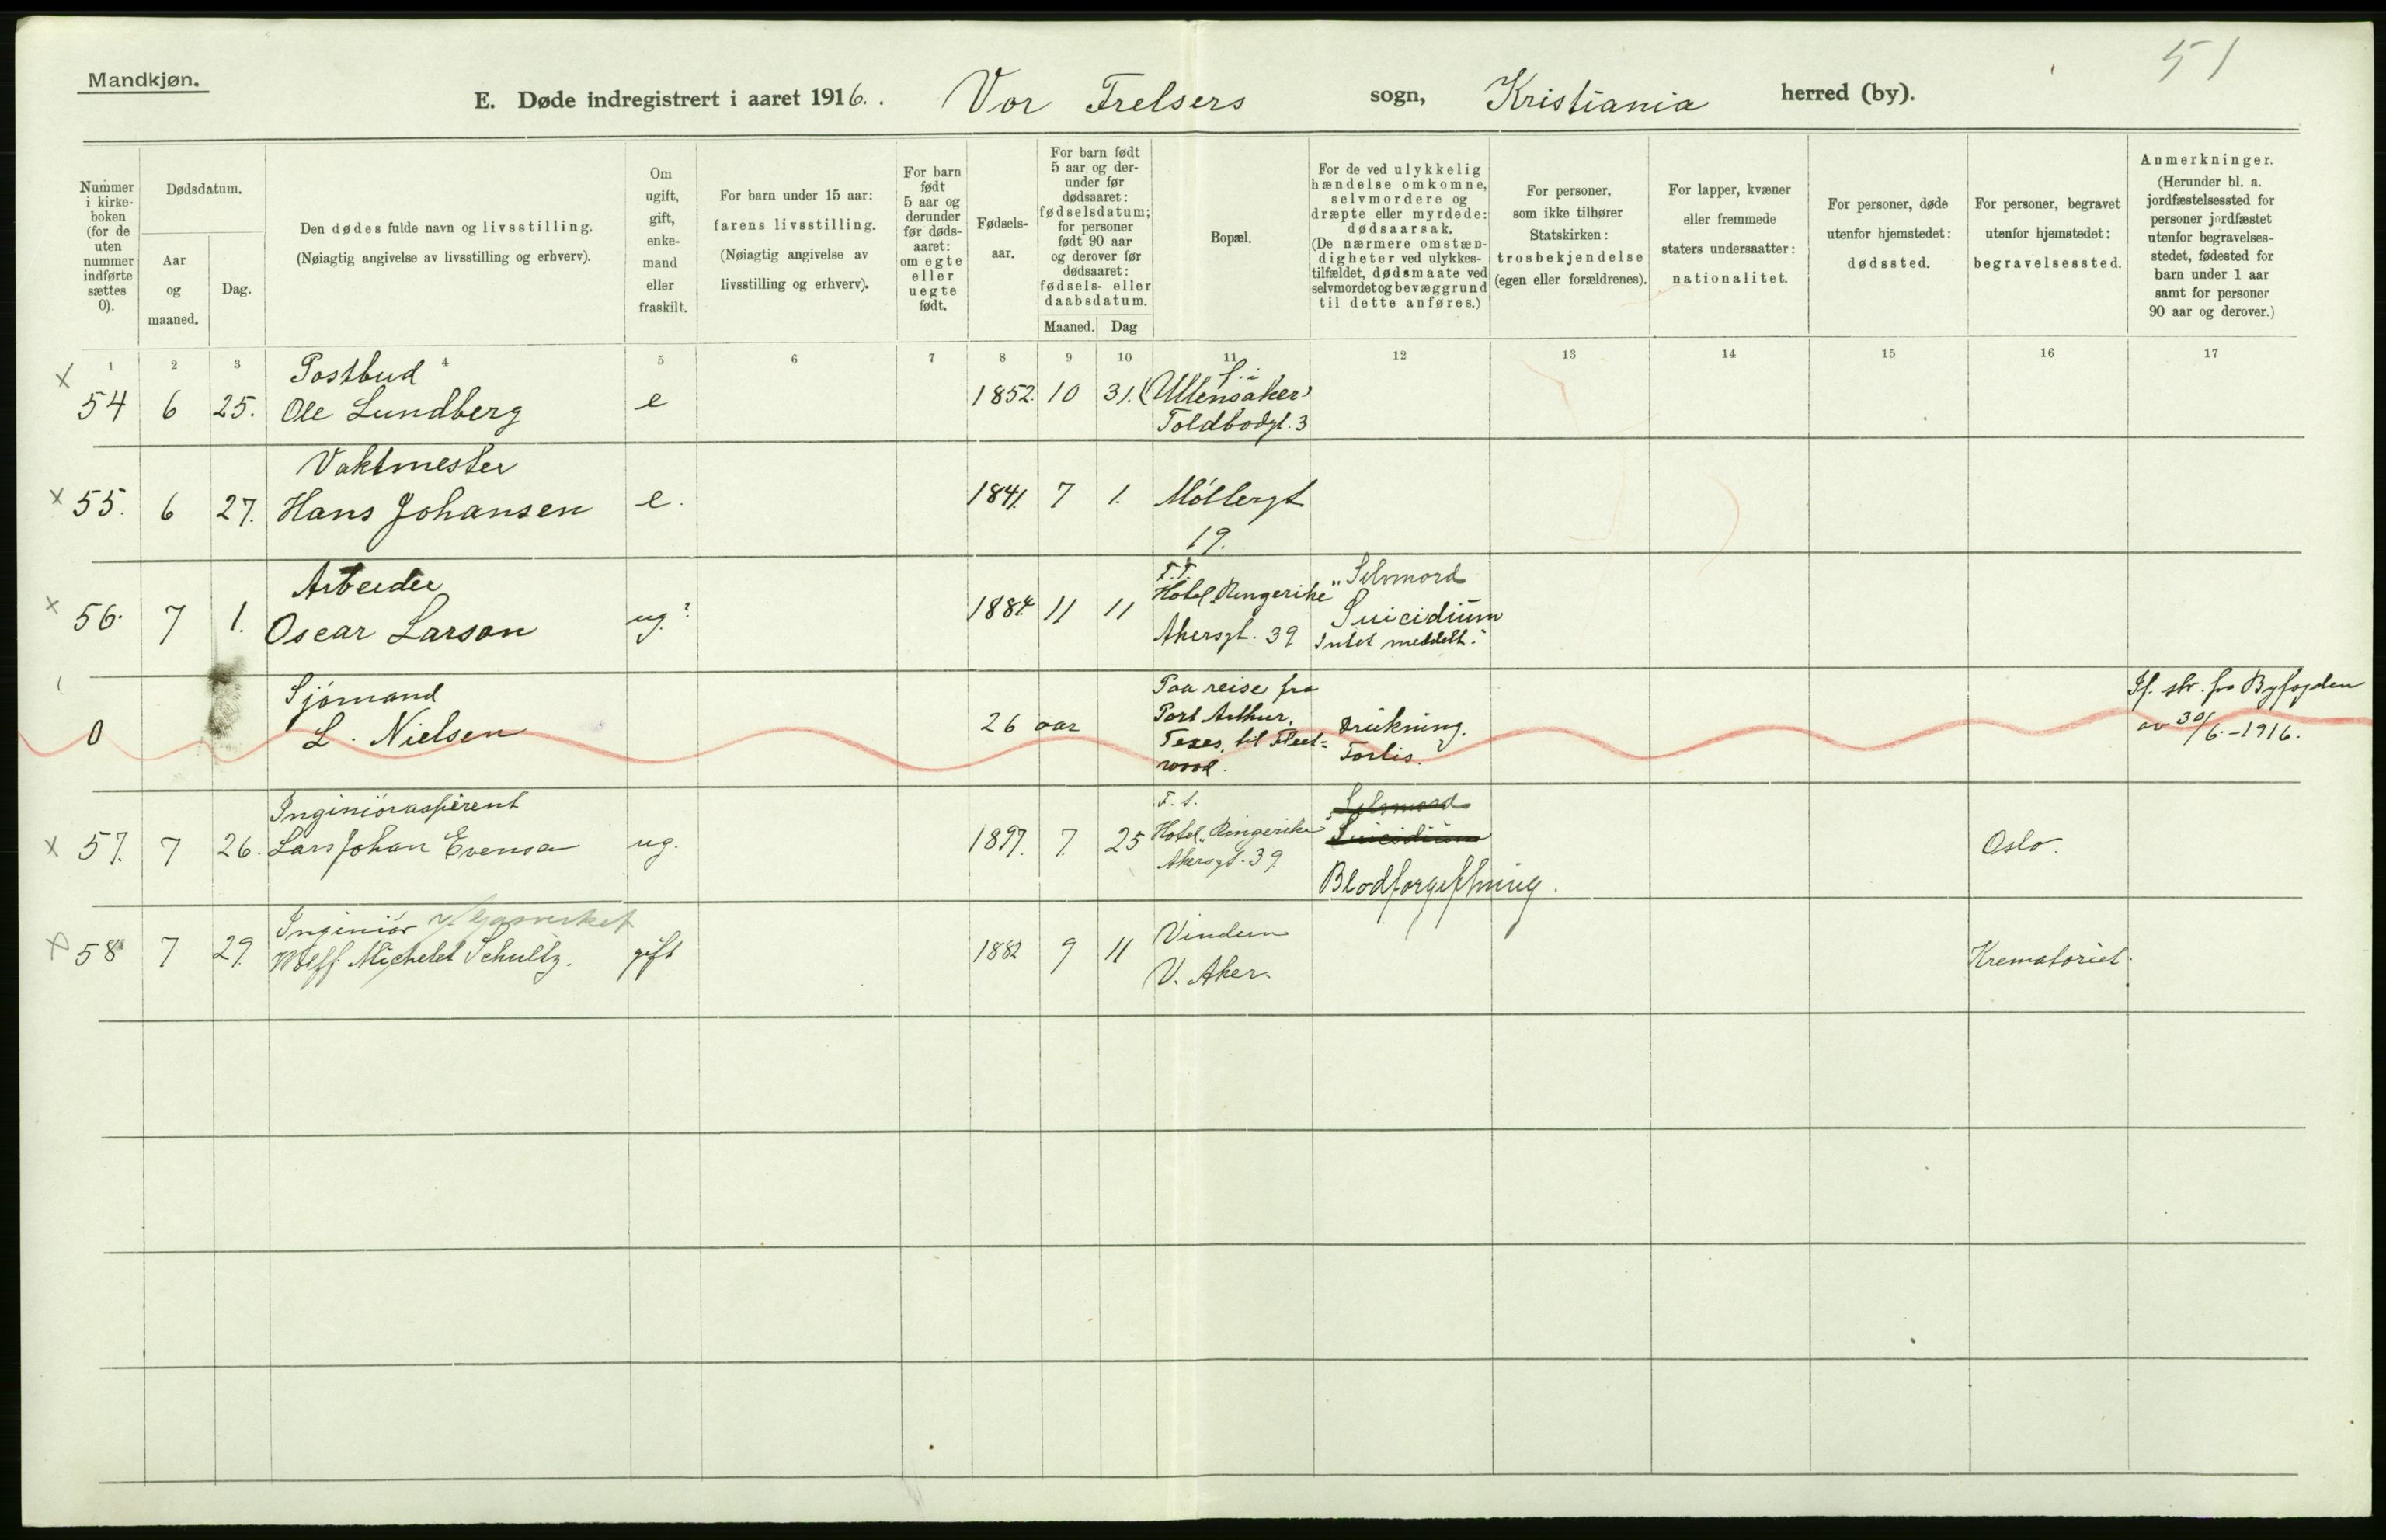 51
Mandkjøn.
E. Døde indregistrert i aaret 1916. Vor Frelsers sogn, Kristiania herred (by).
Nummer i kirke-boken (for de uten nummer indførte sættes 0).
Dødsdatum.
Aar og maaned.
Dag.
Den dødes fulde navn og livsstilling.
(Nøiagtig angivelse av livsstilling og erhverv).
Om ugift, gift, enke-mand eller fraskilt.
For barn under 15 aar: farens livsstilling. (Nøiagtig angivelse av livsstilling og erhverv).
For barn født 5 aar og derunder før døds-aaret: om egte eller uegte født.
Fødsels-aar.
For barn født 5 aar og der-under før dødsaaret: fødselsdatum; for personer født 90 aar og derover før dødsaaret: fødsels- eller daabsdatum.
Maaned. Dag
Bopæl.
For de ved ulykkelig hændelse omkomne, selvmordere og dræpte eller myrdede: dødsaarsak. (De nærmere omstæn-digheter ved ulykkes-tilfældet, dødsmaate ved selvmordet og bevæggrund til dette anføres.)
For personer, som ikke tilhører Statskirken: trosbekjendelse (egen eller forældrenes).
For lapper, kvæner eller fremmede staters undersaatter: nationalitet.
For personer, døde utenfor hjemstedet: dødssted.
For personer, begravet utenfor hjemstedet: begravelsessted.
Anmerkninger. (Herunder bl. a. jordfæstelsessted for personer jordfæstet utenfor begravelses-stedet, fødested for barn under 1 aar samt for personer 90 aar og derover.)
1 2 3 4 5 6 7 8 9 10 11 12 13 14 15 16 17
x
Postbud
54 6 25. Ole Lundberg e 1852. 10 31. (Ullensaker)
Toldbodgt. 3
Vaktmester
x 55. 6 27. Hans Johansen e. 1841. 7 1. Møllergt
19.
Arbeider F.T. Selvmord
x 56. 7 1. Oscar Larson ug.? 1884. 11 11 Hotel „Ringerike" Suicidium
Akersgt. 39 Intet meddelt.
Sjømand Paa reise fra If. skr. fra Byfogden
0 L. Nielsen 26 aar Port Arthur, Drukning. av 30/6.-1916.
Texes, til Fleet=
wood. Forlis.
Ingeniøraspirent F.t. Selvmord
x 57. 7 26. Lars Johan Evensen ug. 1897. 7. 25 Hotel „Ringerike" Suicidium Oslo.
Akersgt. 39.
Blodforgiftning.
Ingeniør v/ Gasverket Vindern
x 58 7 29. Michelet Schultz. gift 1882 9 11 V. Aker. Krematoriet.